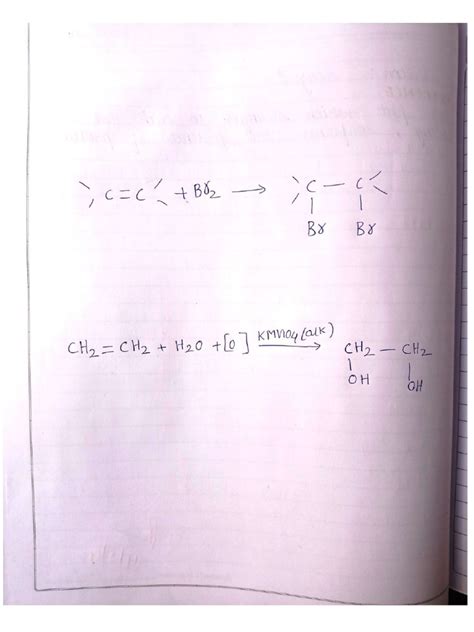 C=C + Br2 → C — C
Br Br
CH2=CH2 + H2O + [O] KMnO4 (alk) → CH2 — CH2
OH OH